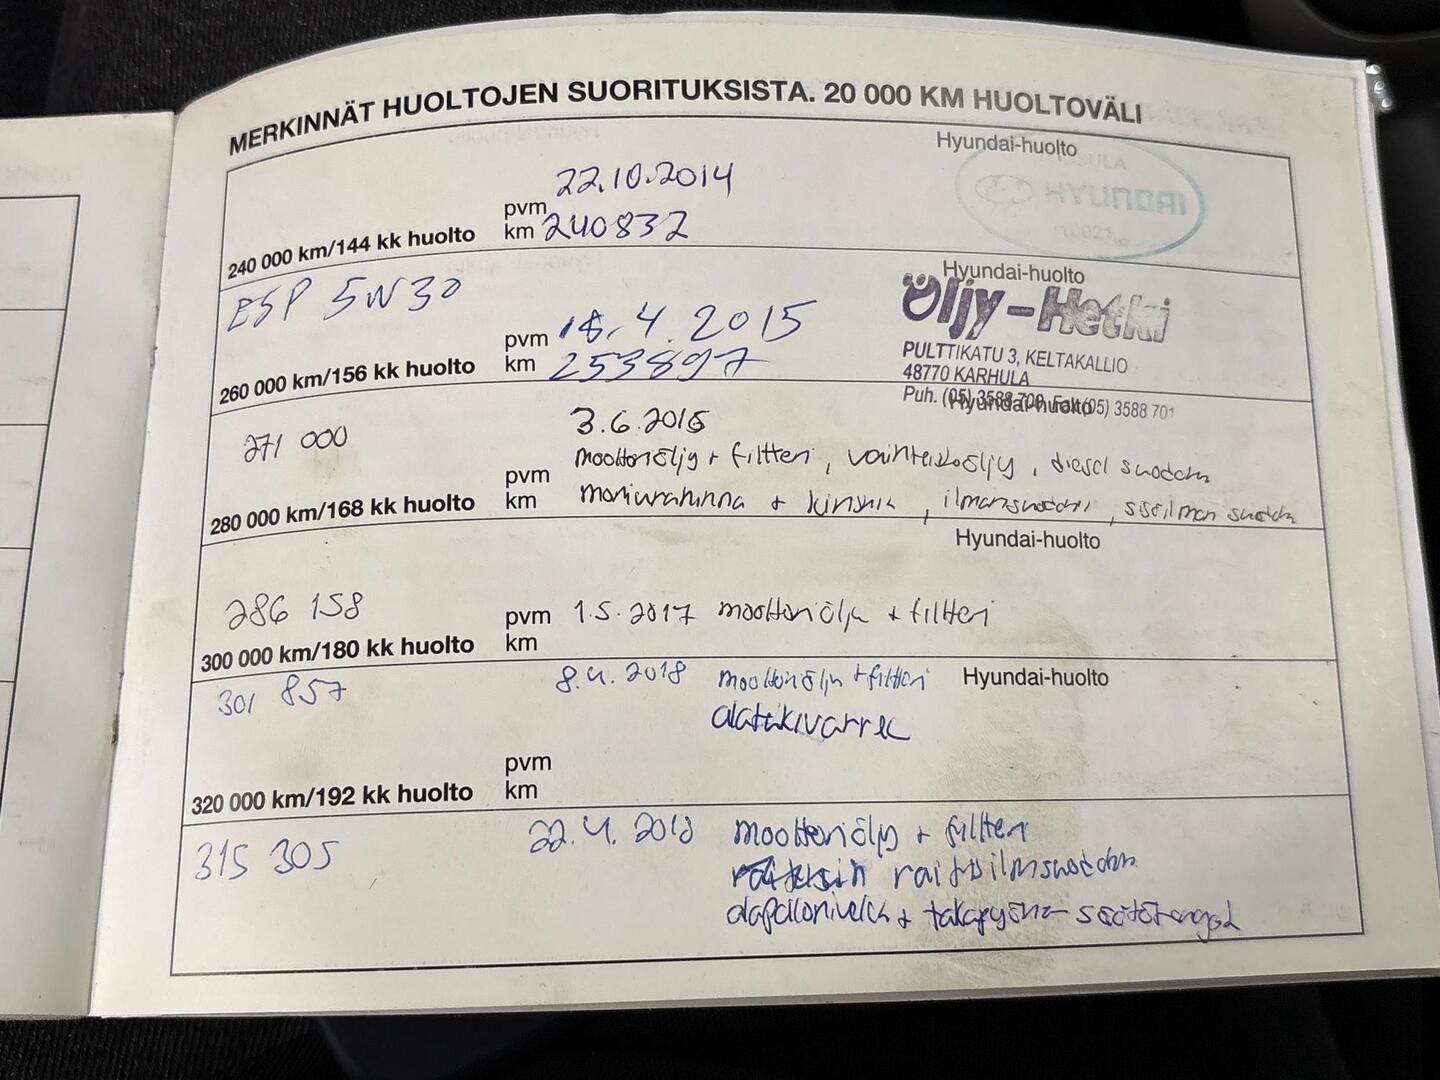 MERKINNÄT HUOLTOJEN SUORITUKSISTA. 20 000 KM HUOLTOVÄLI
Hyundai-huolto
HYUNDAI
22.10.2014
pvm
240 000 km/144 kk huolto km 240837
Hyundai-huolto
Öljy-Hetki
ESP 5W30
pvm 15.4.2015
PULTTIKATU 3, KELTAKALLIO
260 000 km/156 kk huolto km 253897
48770 KARHULA
Puh. (05) 3588 700, Fax (05) 3588 701
Hyundai-huolto
271 000 3.6.2016
moottoriöljy + filtteri, vaihteistoöljy, diesel suodatin
pvm
280 000 km/168 kk huolto km
+ ilmansuodatin, sisäilman suodatin
Hyundai-huolto
286 158 pvm 1.5.2017 moottoriöljy + filtteri
300 000 km/180 kk huolto km
301 857 8.4.2018 moottoriöljy + filtteri Hyundai-huolto
alatukivarret
pvm
320 000 km/192 kk huolto km
315 305 22.4. moottoriöljy + filtteri
raitisilmasuodatin
alapallonivelet + takapyörän säätötangot